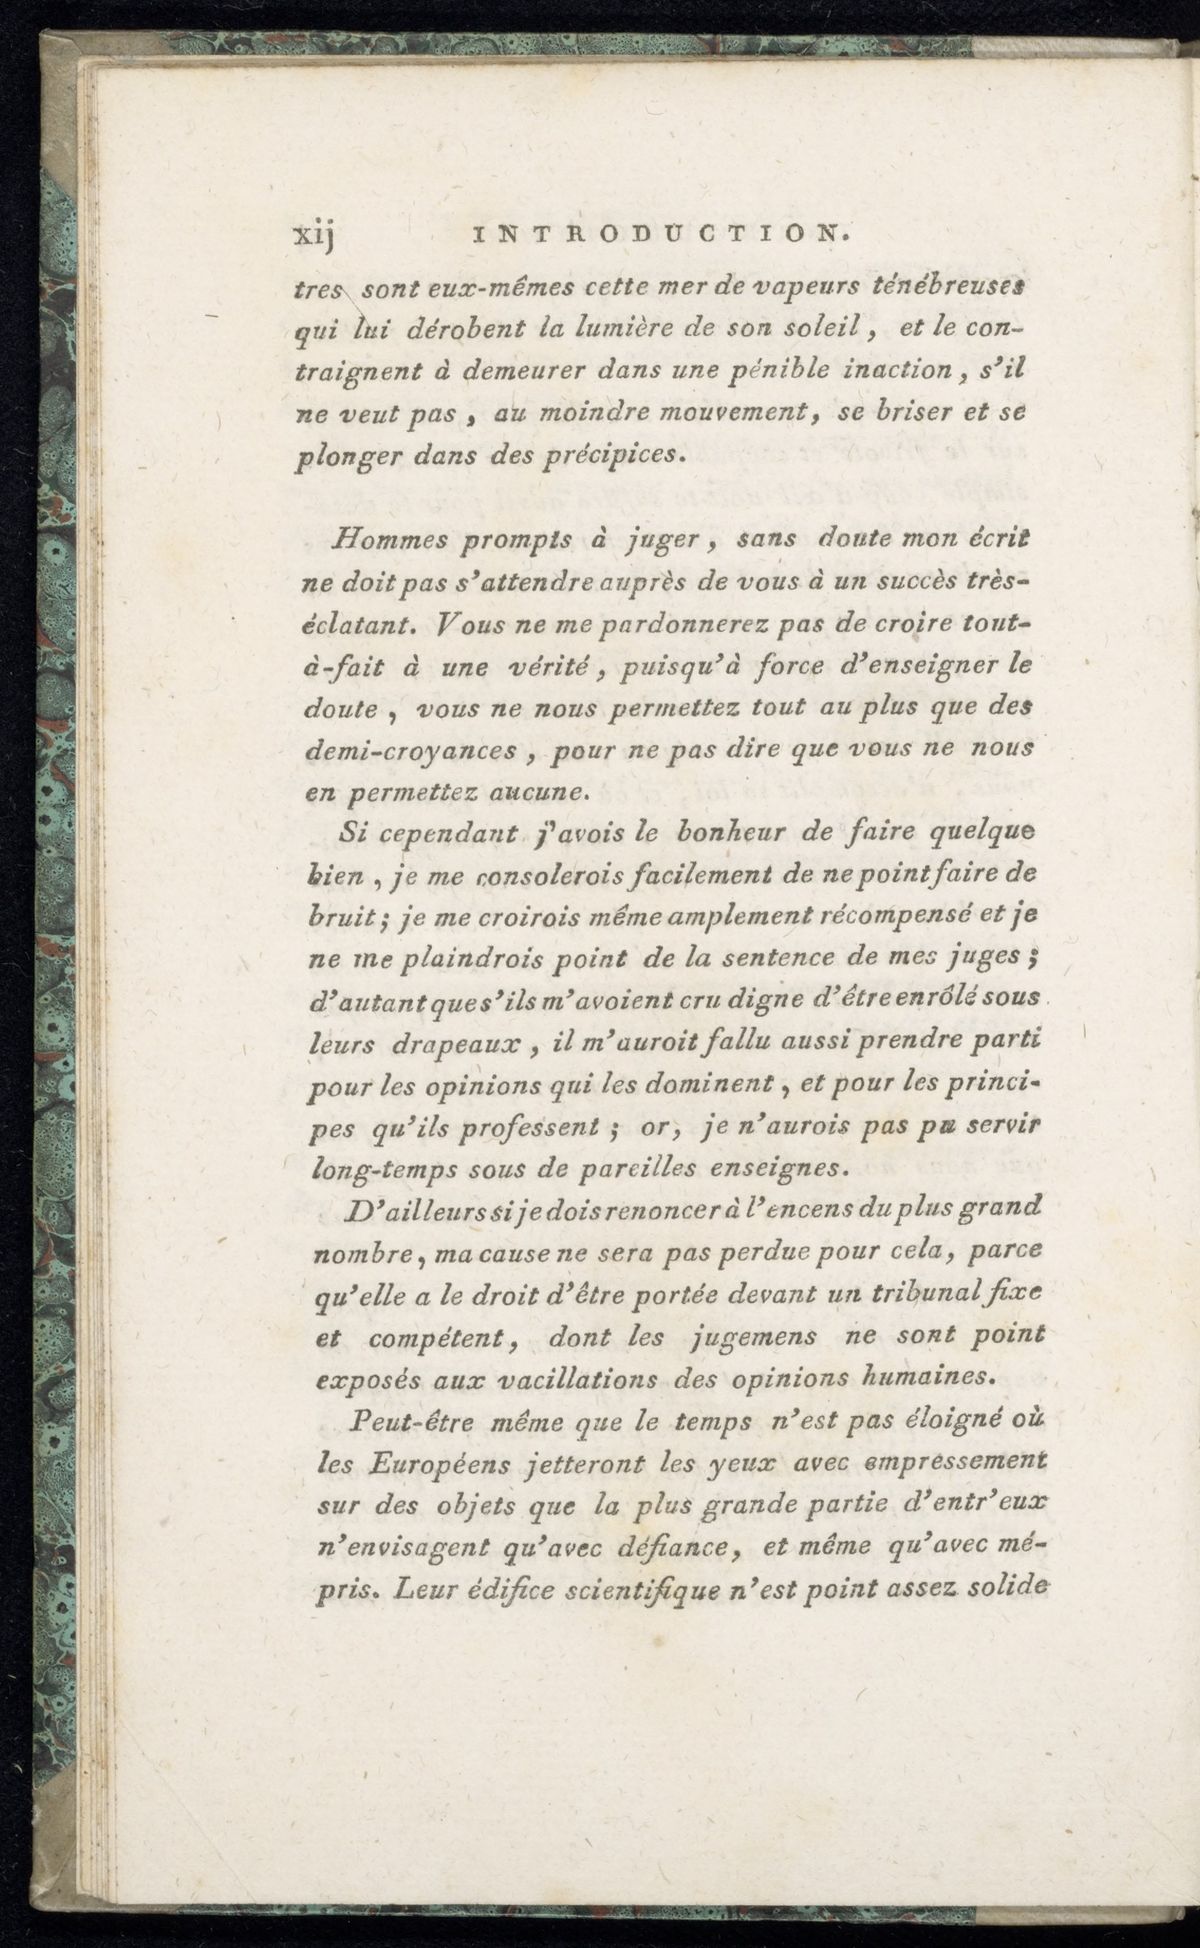 xij INTRODUCTION.
tres sont eux-mêmes cette mer de vapeurs ténébreuses
qui lui dérobent la lumière de son soleil, et le con-
traignent à demeurer dans une pénible inaction, s'il
ne veut pas, au moindre mouvement, se briser et se
plonger dans des précipices.
Hommes prompts à juger, sans doute mon écrit
ne doit pas s'attendre auprès de vous à un succès très-
éclatant. Vous ne me pardonnerez pas de croire tout-
à-fait à une vérité, puisqu'à force d'enseigner le
doute, vous ne nous permettez tout au plus que des
demi-croyances, pour ne pas dire que vous ne nous
en permettez aucune.
Si cependant j'avois le bonheur de faire quelque
bien, je me consolerois facilement de ne point faire de
bruit; je me croirois même amplement récompensé et je
ne me plaindrois point de la sentence de mes juges;
d'autant que s'ils m'avoient cru digne d'être enrôlé sous
leurs drapeaux, il m'auroit fallu aussi prendre parti
pour les opinions qui les dominent, et pour les princi-
pes qu'ils professent; or, je n'aurois pas pu servir
long-temps sous de pareilles enseignes.
D'ailleurs si je dois renoncer à l'encens du plus grand
nombre, ma cause ne sera pas perdue pour cela, parce
qu'elle a le droit d'être portée devant un tribunal fixe
et compétent, dont les jugemens ne sont point
exposés aux vacillations des opinions humaines.
Peut-être même que le temps n'est pas éloigné où
les Européens jetteront les yeux avec empressement
sur des objets que la plus grande partie d'entr'eux
n'envisagent qu'avec défiance, et même qu'avec mé-
pris. Leur édifice scientifique n'est point assez solide